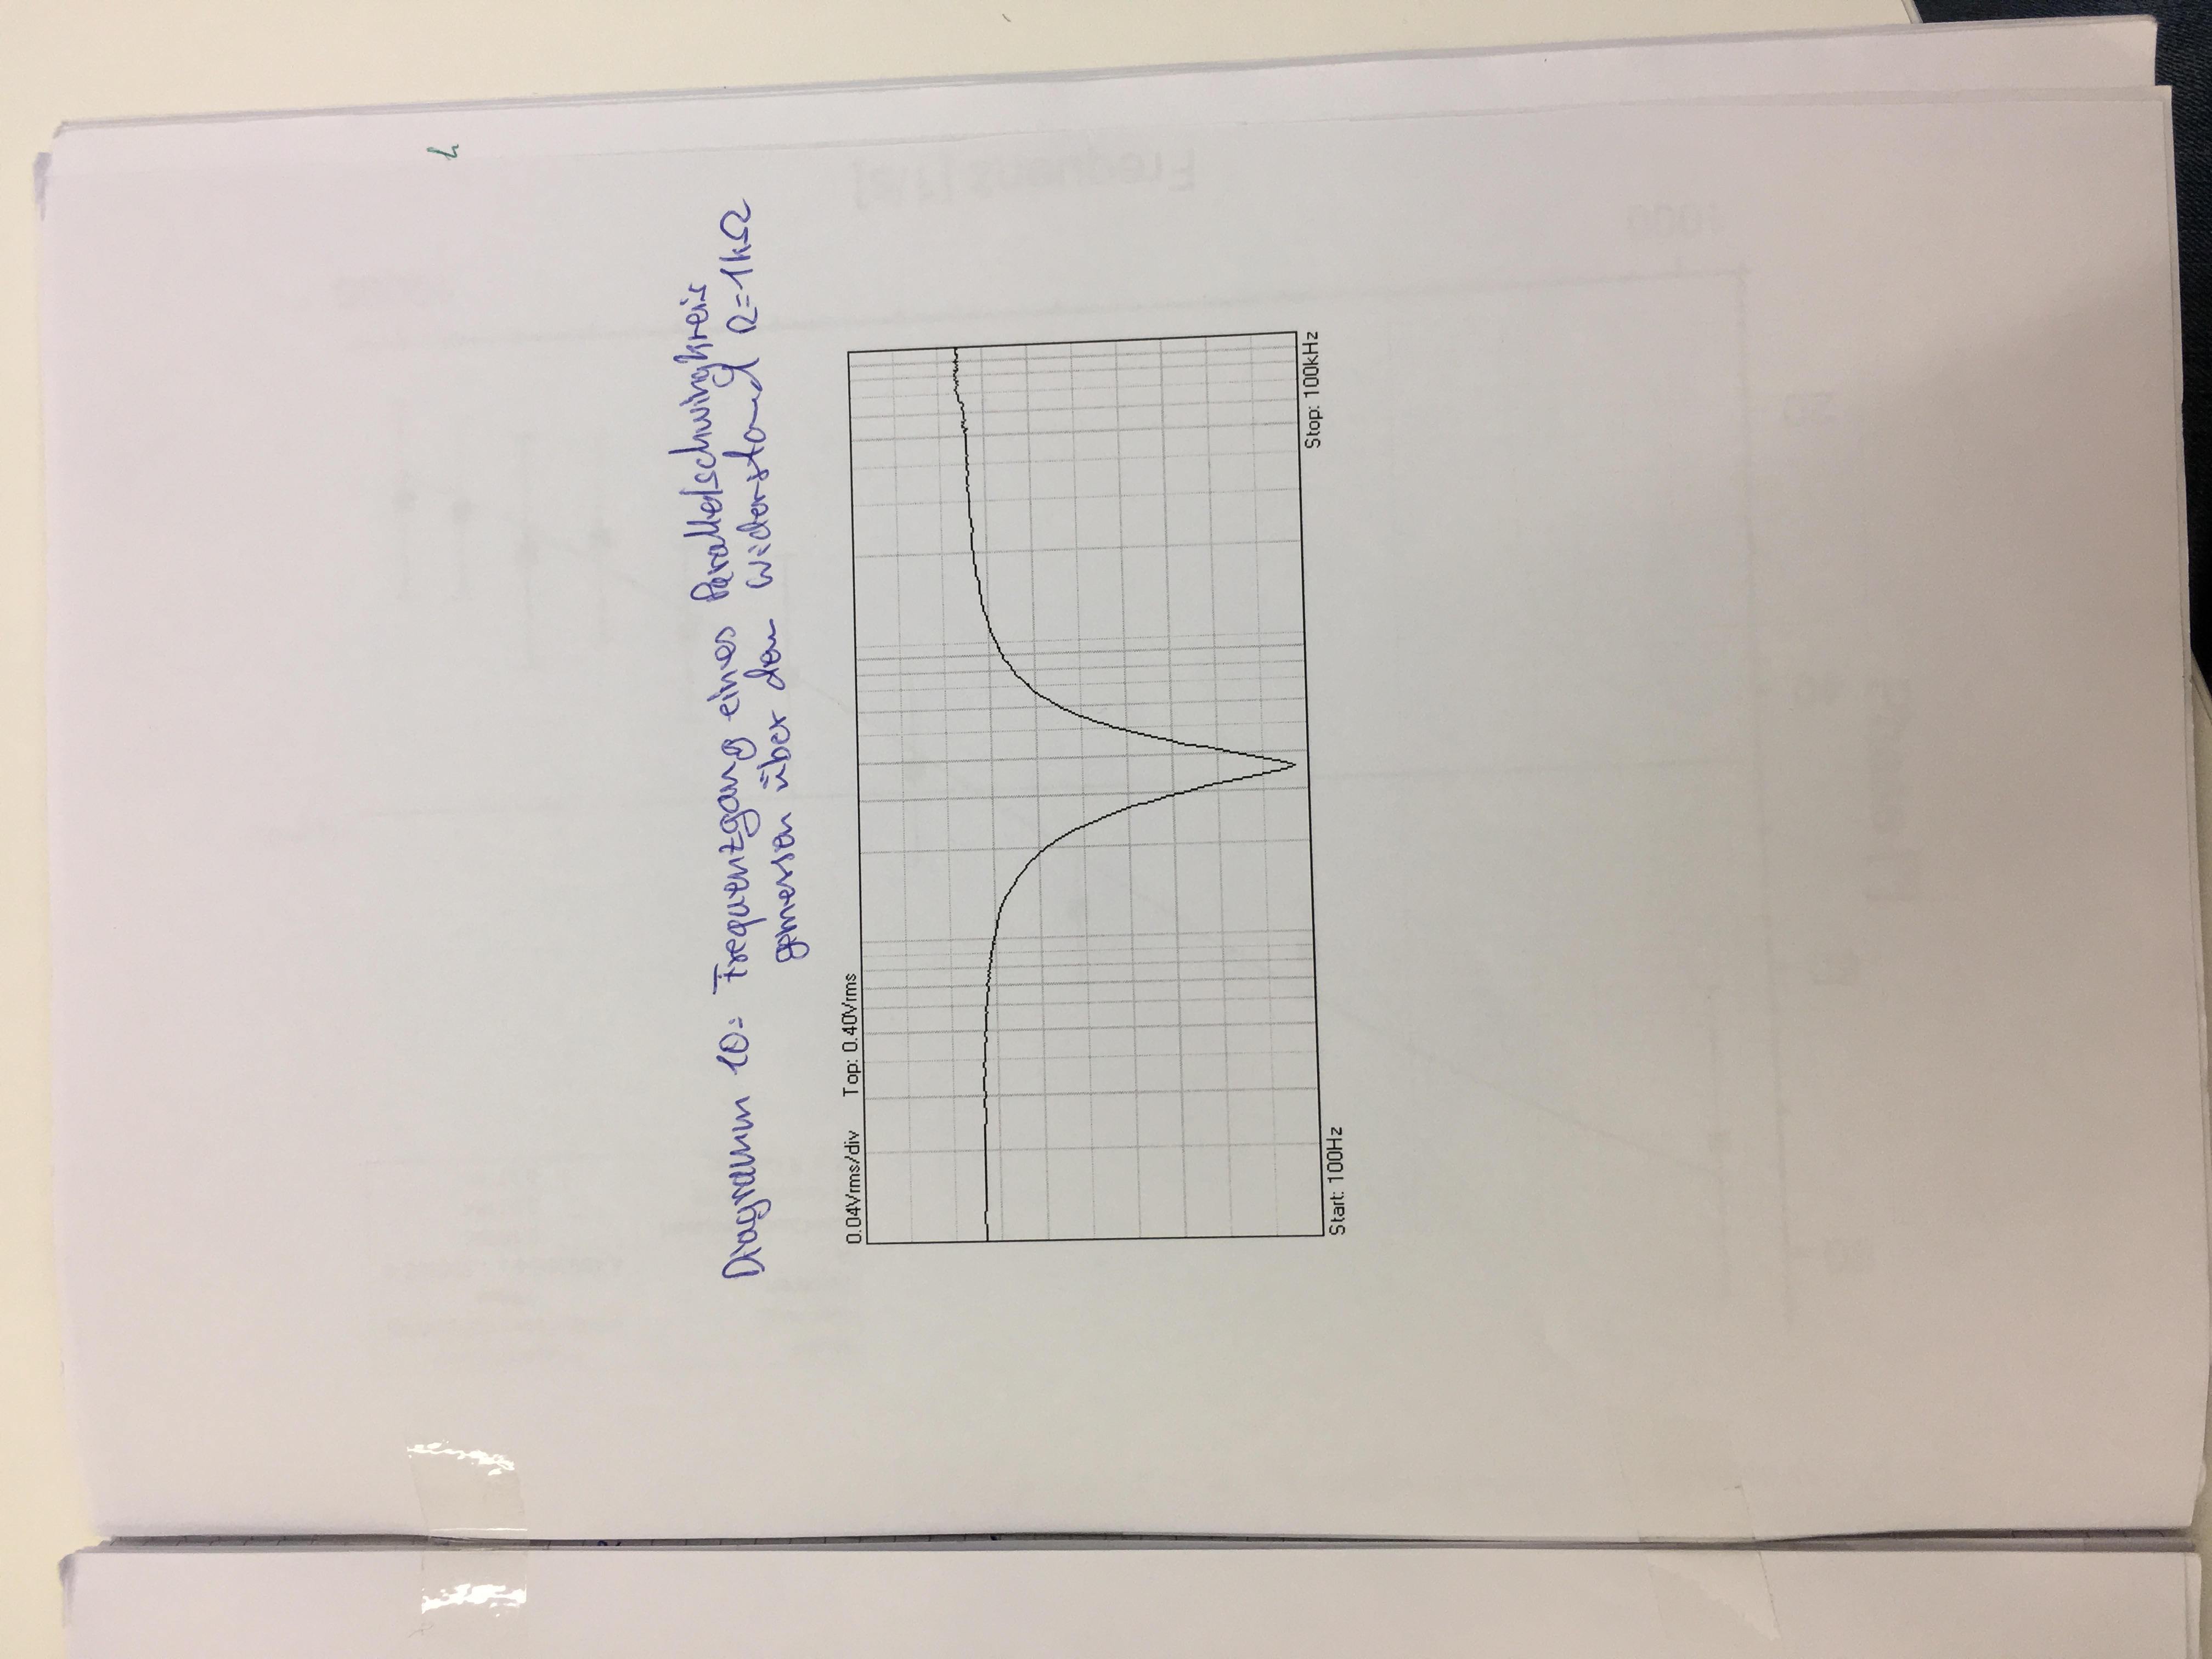 Diagramm 10: Frequenzgang eines Parallelschwingkreis
gemessen über dem Widerstand R=1kΩ
0.04Vrms/div Top: 0.40Vrms
Start: 100Hz Stop: 100kHz